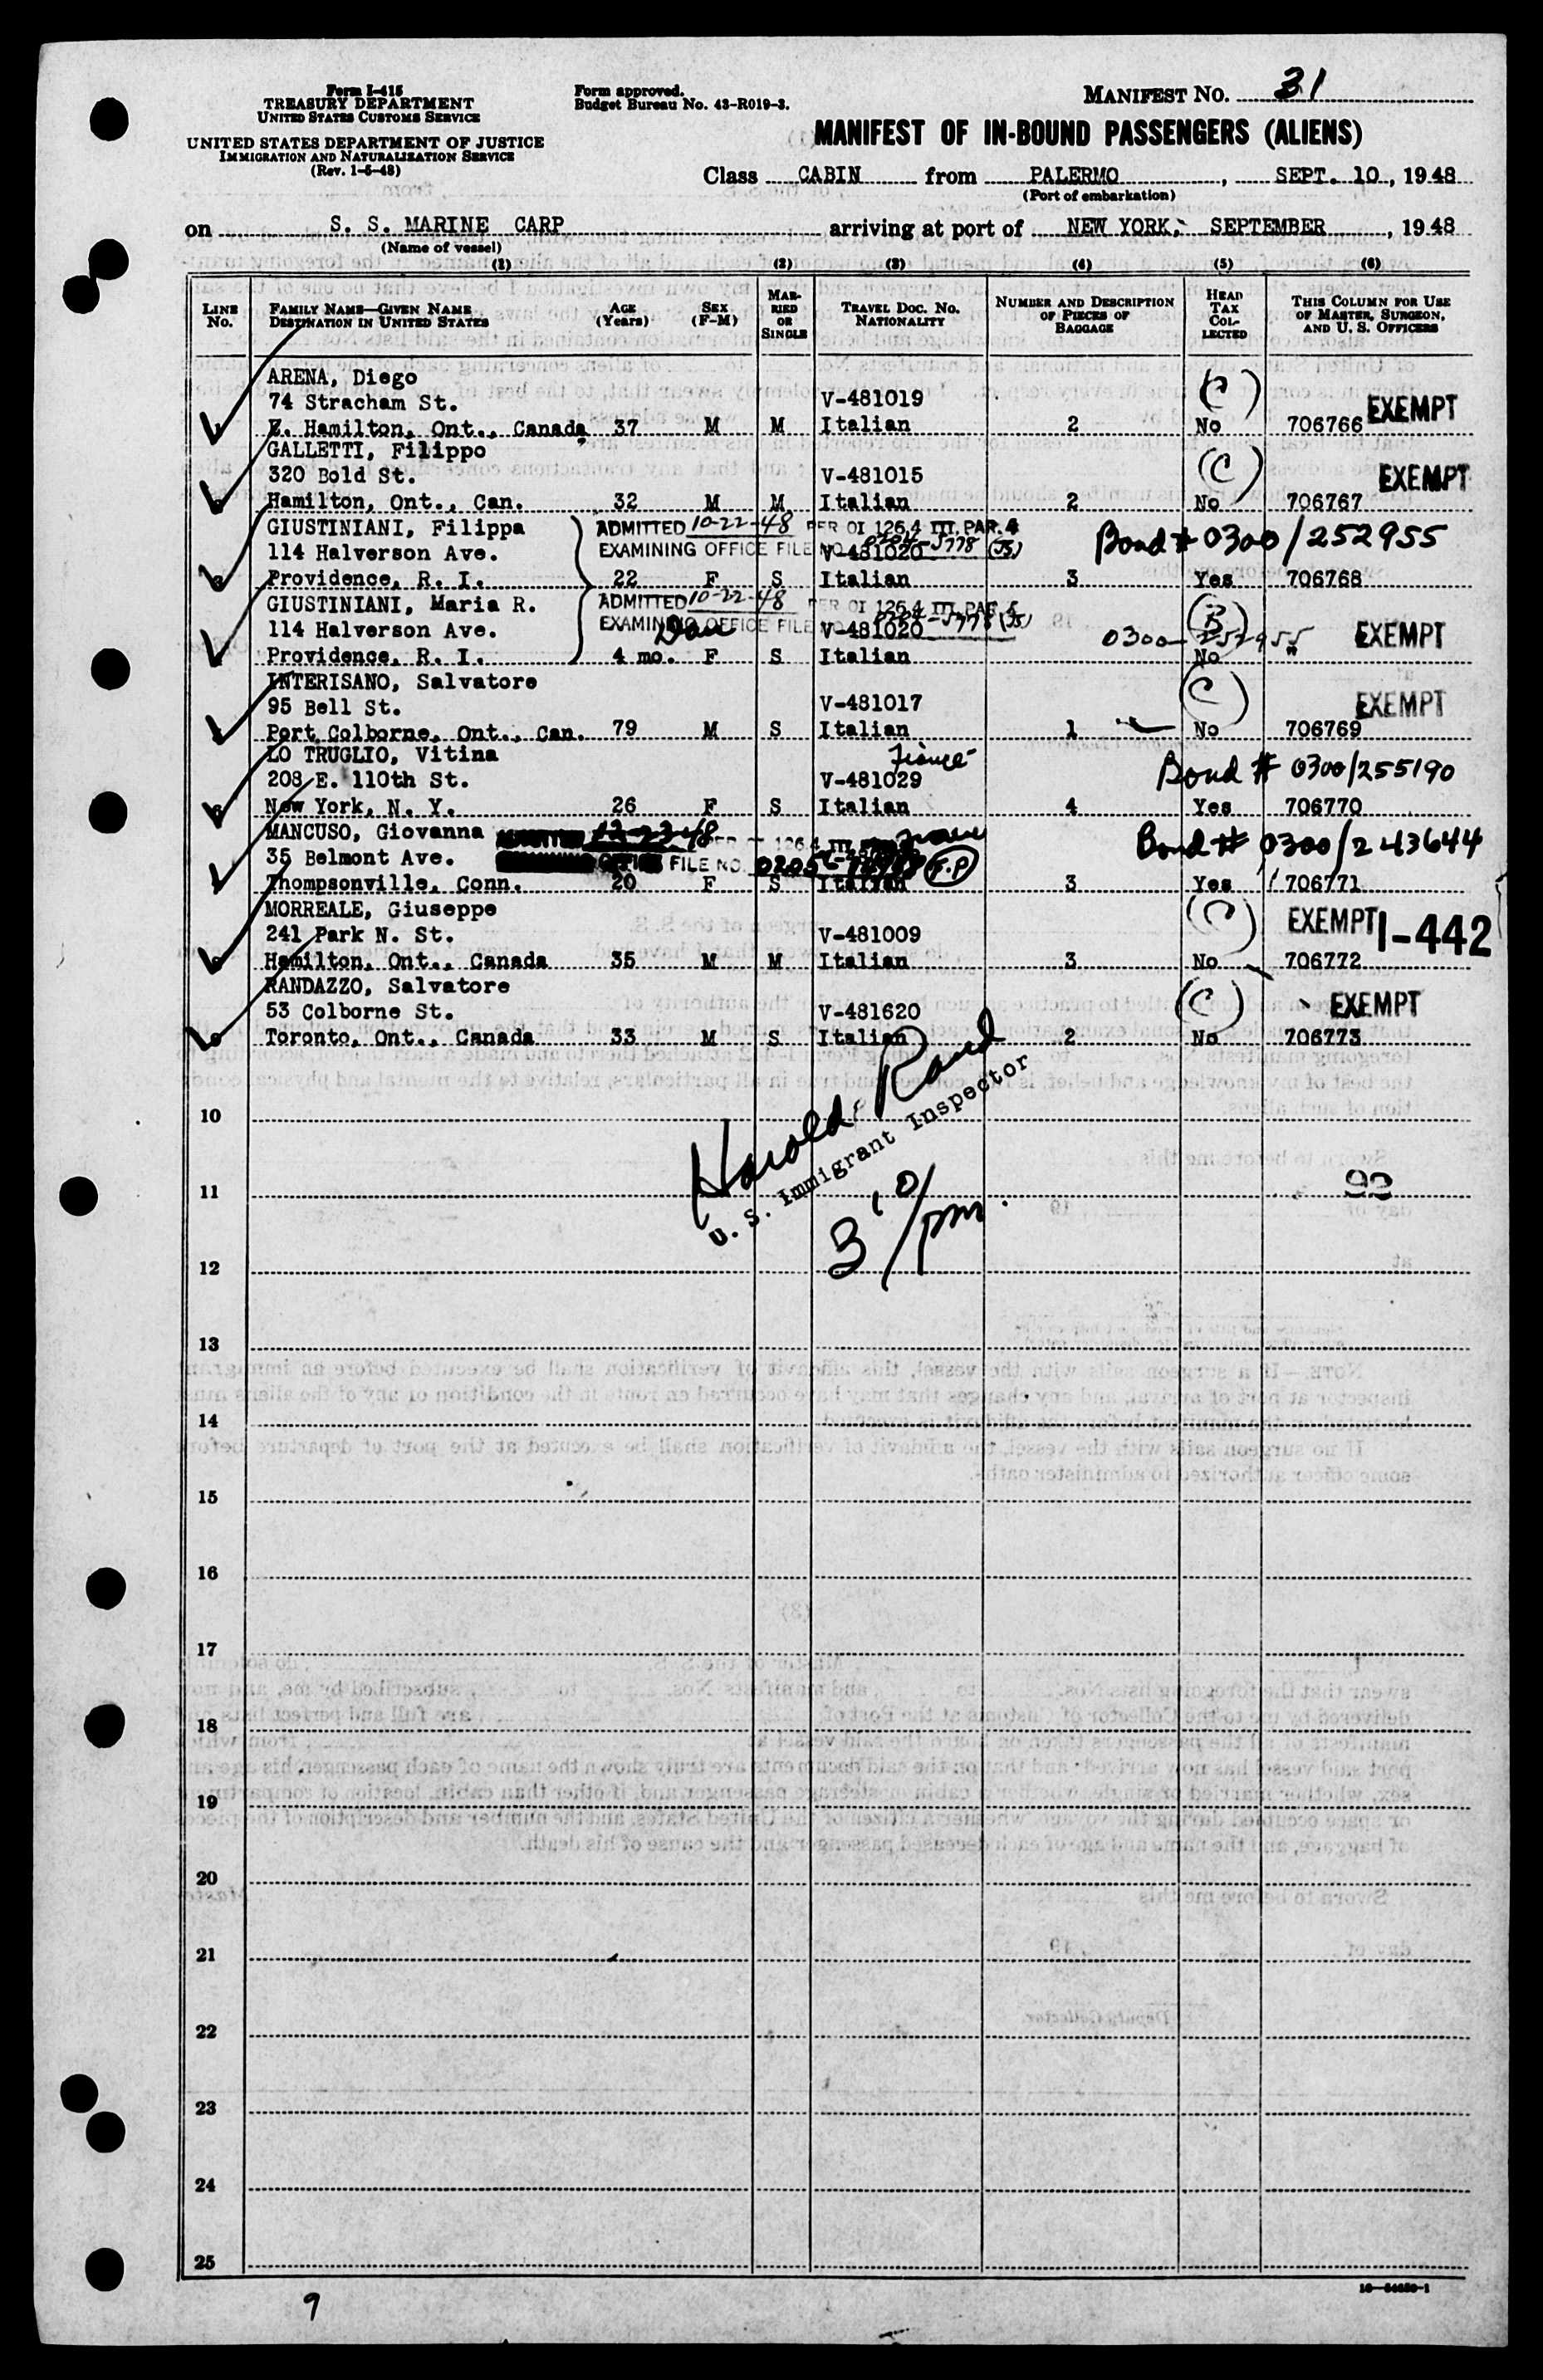 Form I-415
TREASURY DEPARTMENT
UNITED STATES CUSTOMS SERVICE
UNITED STATES DEPARTMENT OF JUSTICE
IMMIGRATION AND NATURALIZATION SERVICE
(Rev. 1-5-48)
Form approved.
Budget Bureau No. 43-R019-3.
MANIFEST NO. 31
MANIFEST OF IN-BOUND PASSENGERS (ALIENS)
Class CABIN from PALERMO, SEPT. 10, 1948
(Port of embarkation)
on S. S. MARINE CARP arriving at port of NEW YORK, SEPTEMBER, 1948
(Name of vessel)
(1) (2) (3) (4) (5) (6)
LINE No. FAMILY NAME—GIVEN NAME DESTINATION IN UNITED STATES AGE (Years) SEX (F-M) MARRIED OR SINGLE TRAVEL DOC. NO. NATIONALITY NUMBER AND DESCRIPTION OF PIECES OF BAGGAGE HEAD TAX COLLECTED THIS COLUMN FOR USE OF MASTER, SURGEON, AND U. S. OFFICERS
ARENA, Diego
74 Stracham St. V-481019 (C) EXEMPT
E. Hamilton, Ont., Canada 37 M M Italian 2 No 706766
GALLETTI, Filippo
320 Bold St. V-481015 (C) EXEMPT
Hamilton, Ont., Can. 32 M M Italian 2 No 706767
GIUSTINIANI, Filippa ADMITTED 10-22-48 PER OI 126.4 III, PAR. 4
114 Halverson Ave. EXAMINING OFFICE FILE NO. V-481020 Bond # 0300/252955
Providence, R. I. 22 F S Italian 3 Yes 706768
GIUSTINIANI, Maria R. ADMITTED 10-22-48 PER OI 126.4 III, PAR. 4
114 Halverson Ave. EXAMINING OFFICE FILE NO. V-481020 (B) 0300-252955 EXEMPT
Providence, R. I. 4 mo. F S Italian No "
INTERISANO, Salvatore
95 Bell St. V-481017 (C) EXEMPT
Port Colborne, Ont., Can. 79 M S Italian 1 No 706769
LO TRUGLIO, Vitina
208 E. 110th St. V-481029 Bond # 0300/255190
New York, N. Y. 26 F S Italian 4 Yes 706770
MANCUSO, Giovanna 12-23-48
35 Belmont Ave. OFFICE FILE NO. Bond # 0300/243644
Thompsonville, Conn. 20 F S Italian 3 Yes 706771
MORREALE, Giuseppe
241 Park N. St. V-481009 (C) EXEMPT I-442
Hamilton, Ont., Canada 35 M M Italian 3 No 706772
RANDAZZO, Salvatore
53 Colborne St. V-481620 (C) EXEMPT
Toronto, Ont., Canada 33 M S Italian 2 No 706773
Harold Rand
U. S. Immigrant Inspector
10
11 92
12
13
14
15
16
17
18
19
20
21
22
23
24
25
9